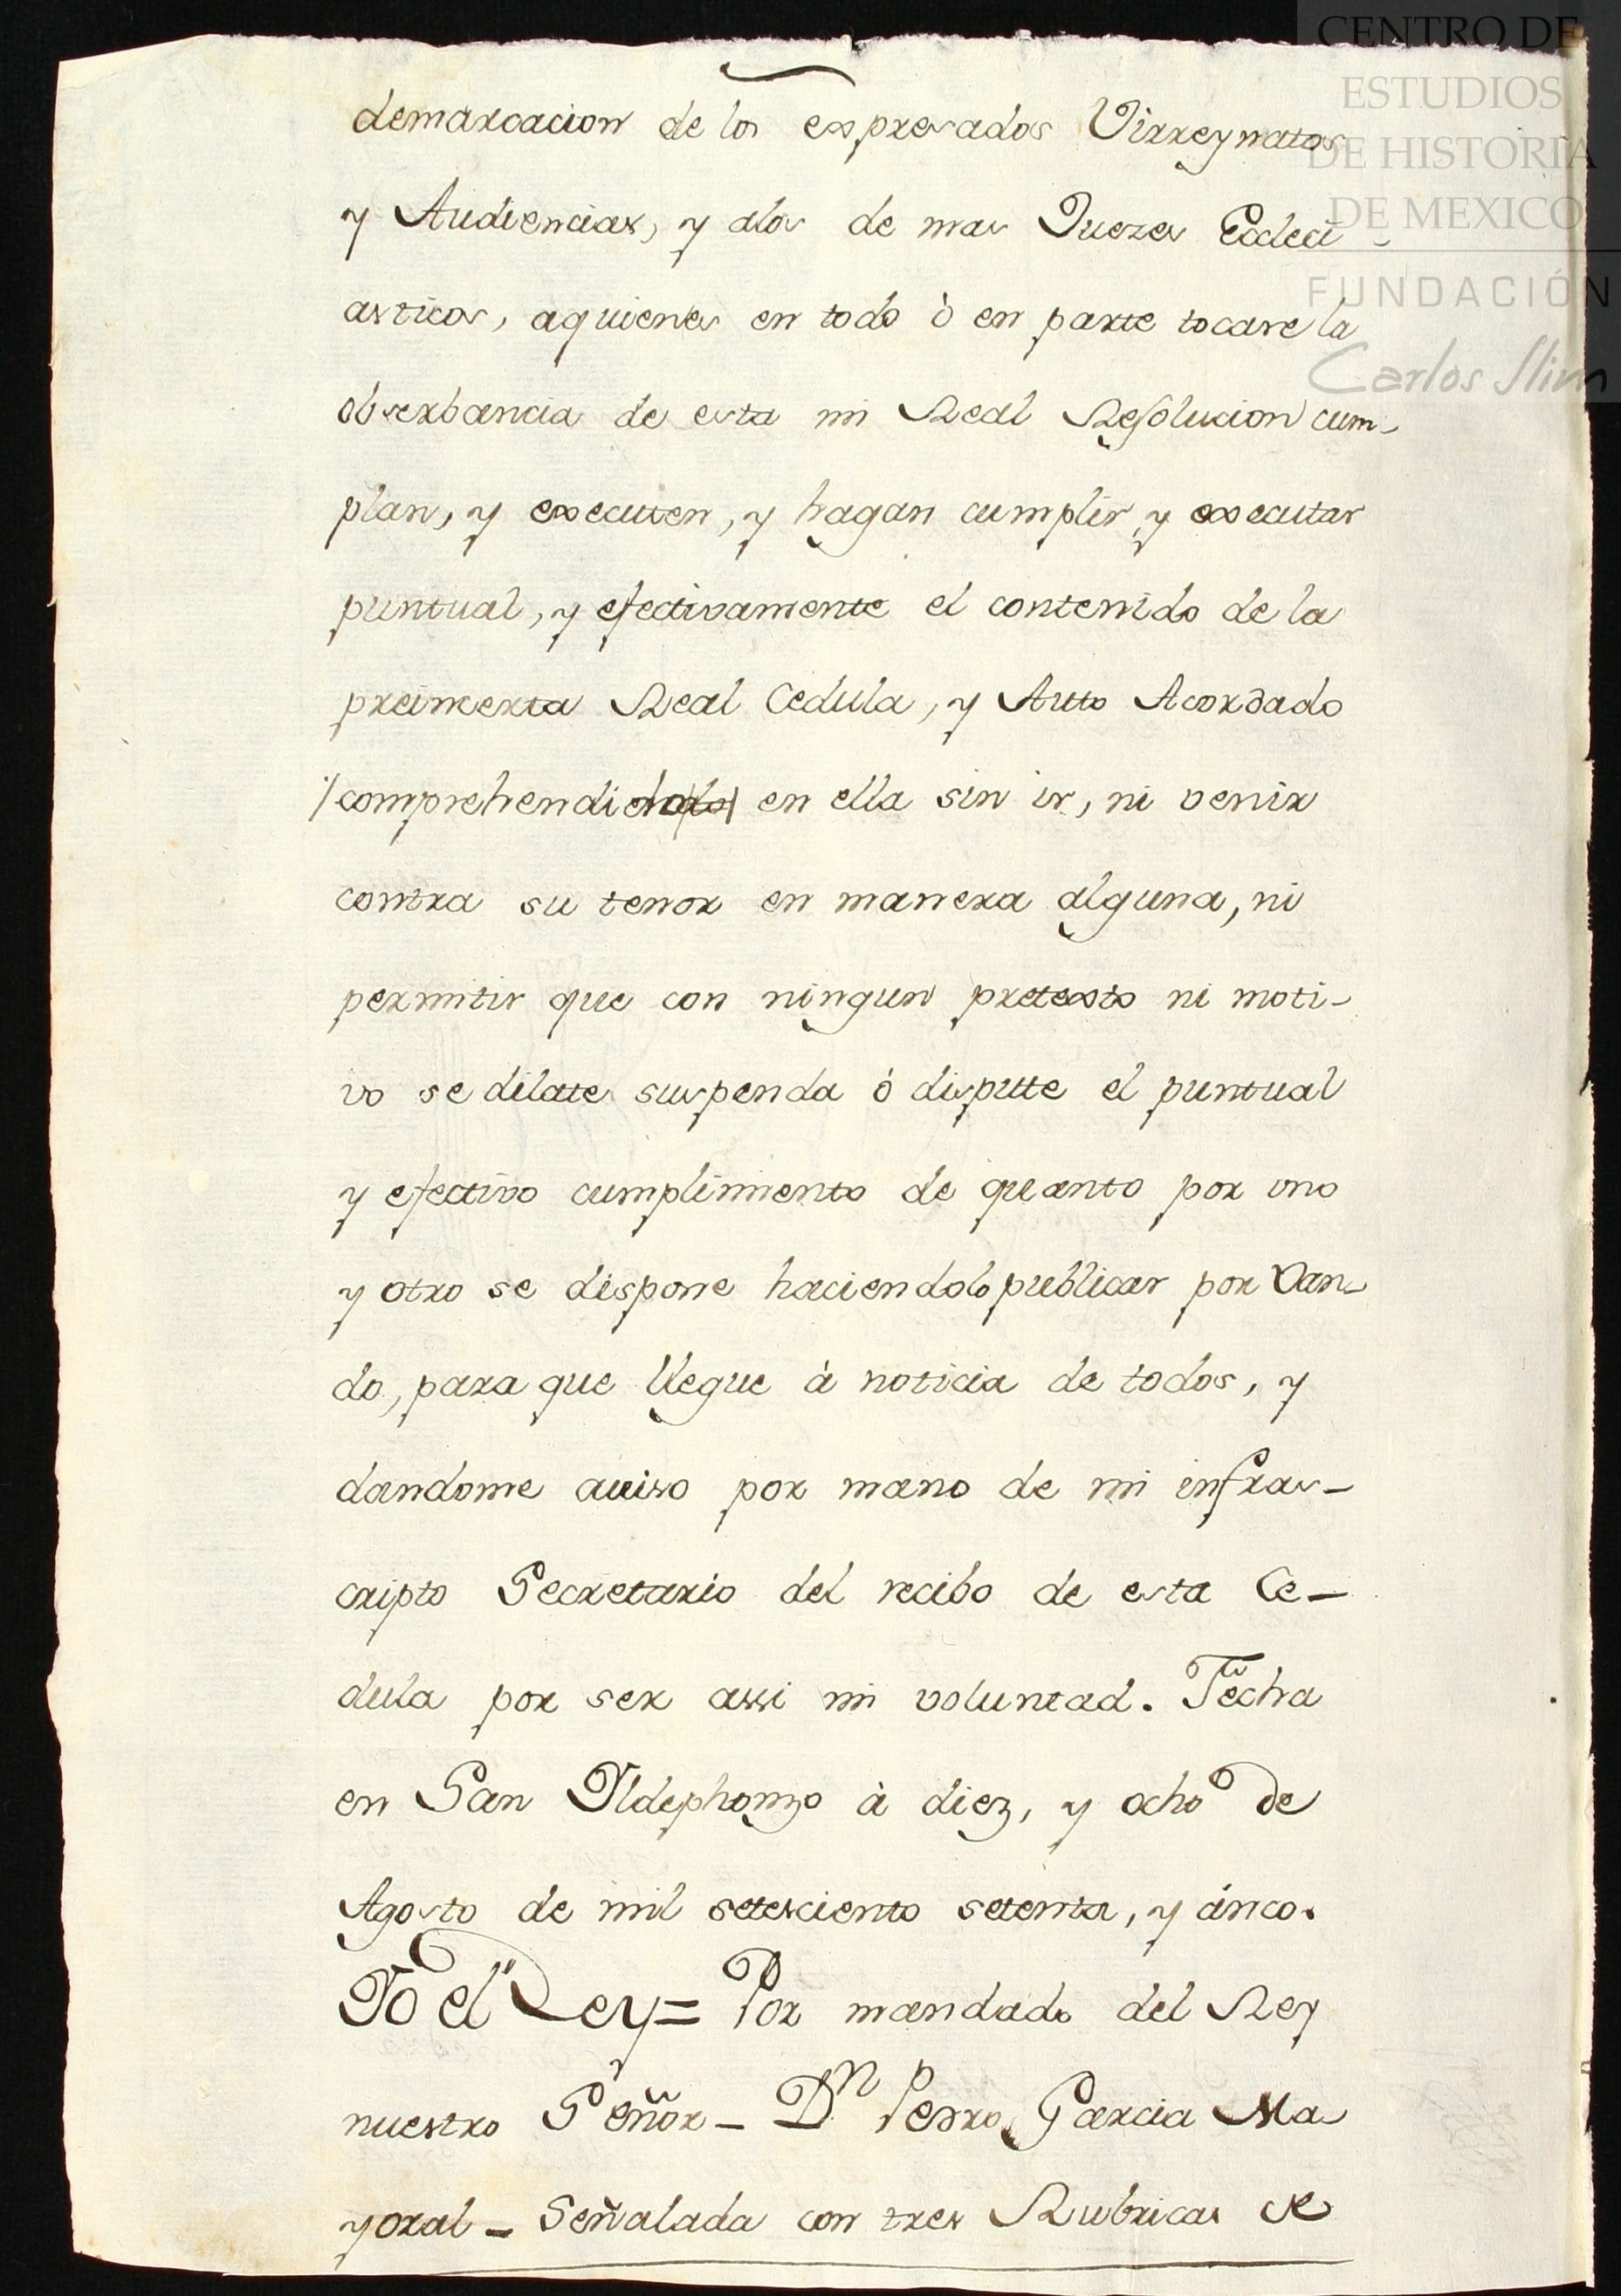 CENTRO DE
ESTUDIOS
DE HISTORIA
DE MEXICO
FUNDACIÓN
Carlos Slim
demarcacion de los expresados Virreynatos
y Audiencias, y alos de mas Juezes Ecclesi-
asticos, aquienes en todo ò en parte tocare la
obserbancia de esta mi Real Resolucion cum-
plan, y executen, y hagan cumplir y executar
puntual, y efectivamente el contenido de la
preincerta Real Cedula, y Auto Acordado
comprehendido en ella sin ir, ni venir
contra su tenor en manera alguna, ni
permitir que con ningun pretexto ni moti-
vo se dilate suspenda ò dispute el puntual
y efectivo cumplimiento de quanto por uno
y otro se dispone haciendolo publicar por Van-
do, para que llegue à noticia de todos, y
dandome auiso por mano de mi infras-
cripto Secretario del recibo de esta Ce-
dula por ser assi mi voluntad. Fecha
en San Ildephonzo à diez, y ocho de
Agosto de mil setesciento setenta, y cinco.
Yo el Rey = Por mandado del Rey
nuestro Señor - Dn Pedro Garcia Ma
yoral - Señalada con tres Rubricas de